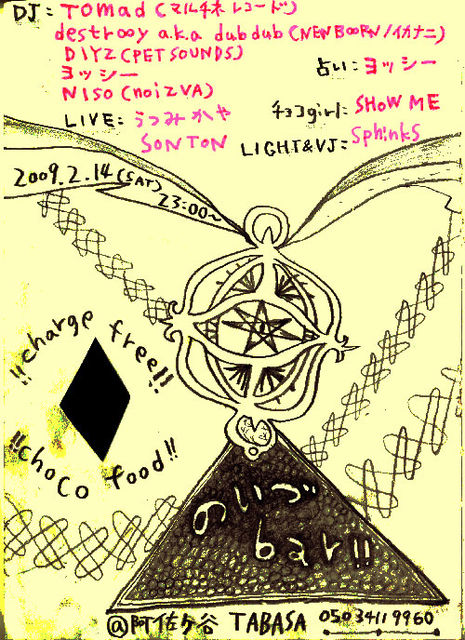 DJ: TOMAD (マルチネ レコード)
destrooy a.k.a dubdub (NEW BOORN/イカナニ)
DIYZ (PET SOUNDS)
ヨッシー
占い: ヨッシー
NISO (noiZVA)
チョコgirl: SHOW ME
LIVE: うつみかや
SONTON
LIGHT&VJ= Sphinks
2009.2.14 (SAT)
23:00~
!!charge free!!
!!choco food!!
のいづ
bar!!
@阿佐ヶ谷 TABASA 05034119960